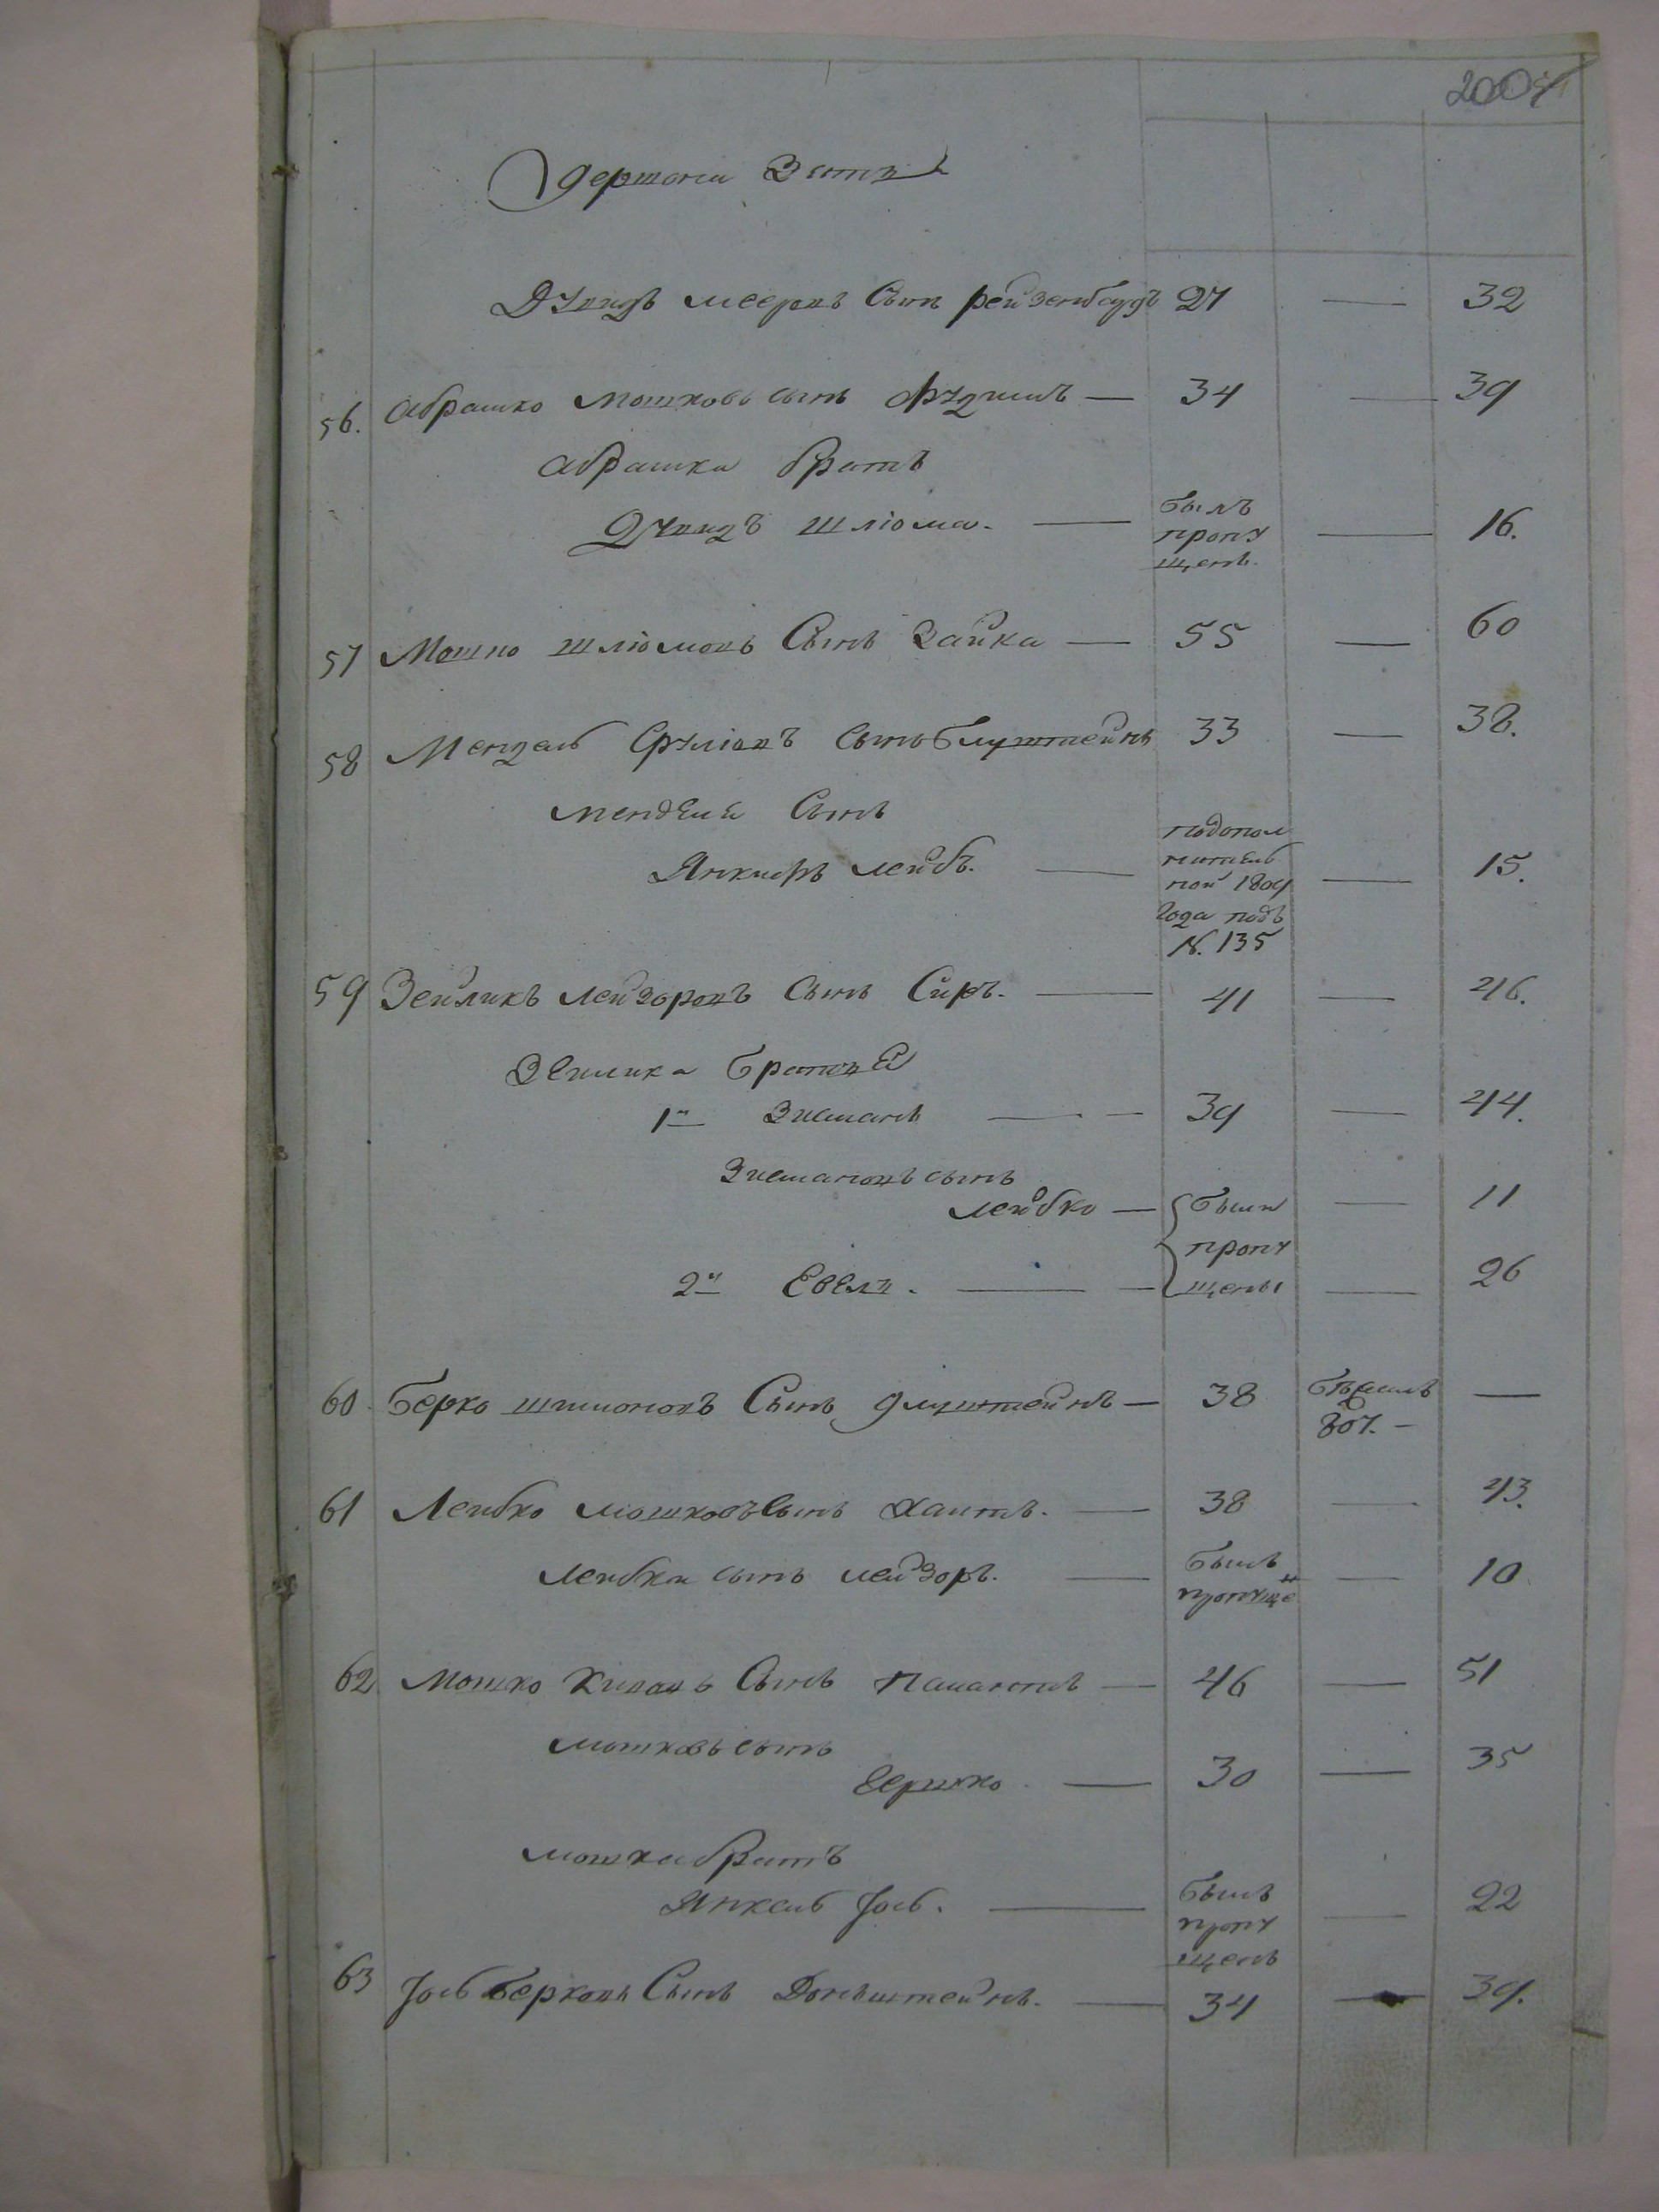 2004
Гершона Зять
Дувидъ мееровъ Сынъ рейзенбаудъ 27 — 32
56. Абрашко мошковъ сынъ — 34 — 39
Абрашки братъ
Дувидъ шліома. — былъ пропущенъ. — 16.
57 Мошко шліомовъ Сынъ Зайка — 55 — 60
58 Мендель Срулiовъ сынъ Глузштейнъ 33 — 38.
менделя Сынъ
Янкиеръ лейбъ. — подополнительной 1809 года подъ N. 135 — 15.
59 Зейликъ лейзоровъ Сынъ Сиръ. — 41 — 46.
Зейлика братья
1й Зисманъ — 39 — 44.
Зисмановъ сынъ
лейбко — были пропущены — 11
2й Евель. — — 26
60 Берко шимоновъ Сынъ — 38 807. —
61 Лейбко мошковъ Сынъ Хаитъ. — 38 — 43.
Лейбки сынъ лейзоръ. — былъ пропущенъ — 10
62 Мошко Кивовъ Сынъ — 46 — 51
мошковъ сынъ
Гершко — 30 — 35
мошка братъ
Янкель Іось. — былъ пропущенъ — 22
63 Іось Берковъ Сынъ — 34 — 39.